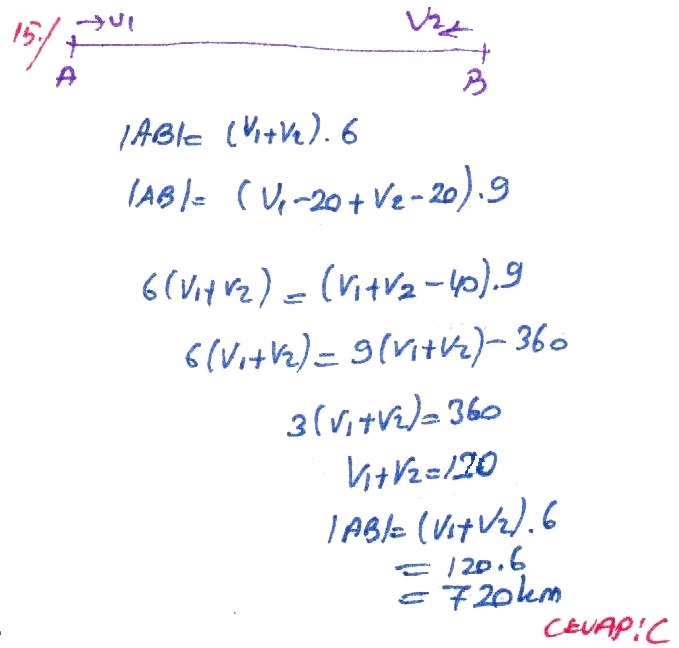 15-/ →V1 V2←
A B
|AB|= (V1+V2).6
|AB|= (V1-20+V2-20).9
6(V1+V2) = (V1+V2-40).9
6(V1+V2)= 9(V1+V2)-360
3(V1+V2)=360
V1+V2=120
|AB|= (V1+V2).6
= 120.6
= 720km
CEVAP:C